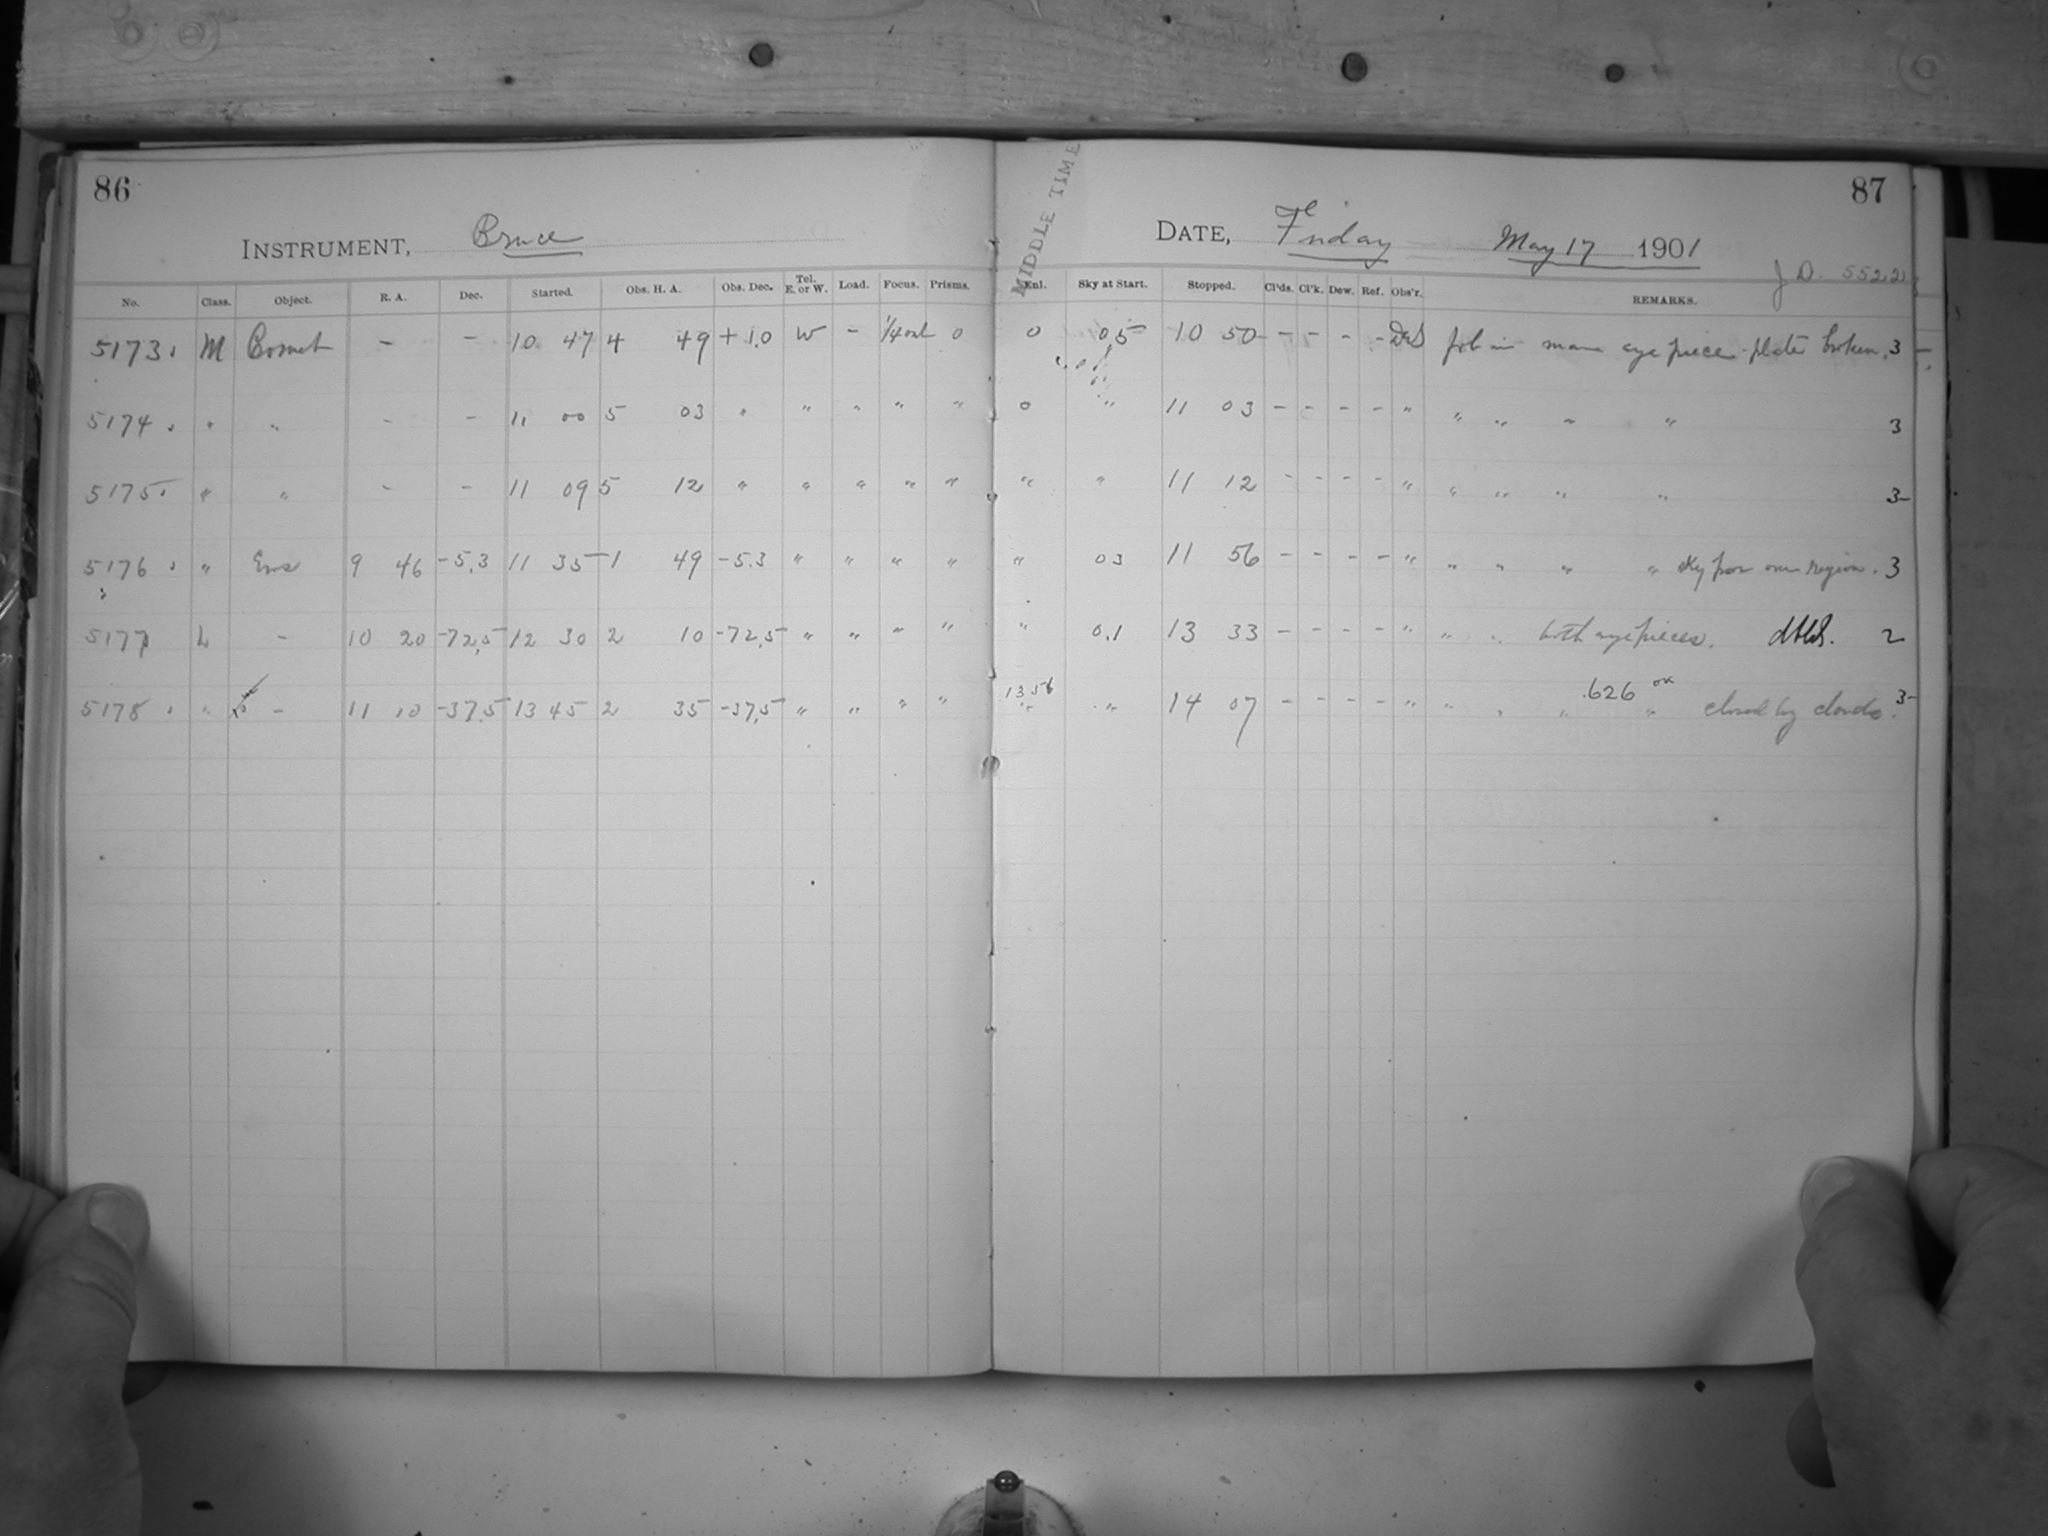 86
INSTRUMENT, Bruce
No. Class. Object. R. A. Dec. Started. Obs. H. A. Obs. Dec. Tel. E. or W. Load. Focus. Prisms.
5173. M Comet - - 10 47 4 49 +1.0 W - 1/4 out 0
5174. " " - - 11 00 5 03 " " " " "
5175. " " - - 11 09 5 12 " " " " "
5176. " Eros 9 46 -5.3 11 35 1 49 -5.3 " " " "
5177 L - 10 20 -72.5 12 30 2 10 -72.5 " " " "
5178. " - 11 10 -37.5 13 45 2 35 -37.5 " " " "
87
MIDDLE TIME
DATE, Friday May 17 1901
J D. 5522
Enl. Sky at Start. Stopped. Cl'ds. Cl'k. Dew. Ref. Obs'r. REMARKS.
0 05 10 50 - - - - eye piece plate broken. 3
0 " 11 03 - - - - " " " " " 3
" " 11 12 - - - - " " " " " 3
" 03 11 56 - - - - " " " " " sky poor over region. 3
" 0.1 13 33 - - - - " " " both eyepieces. 2
13 56 .626 ox
" " 14 07 - - - - " " " " " closed by clouds. 3